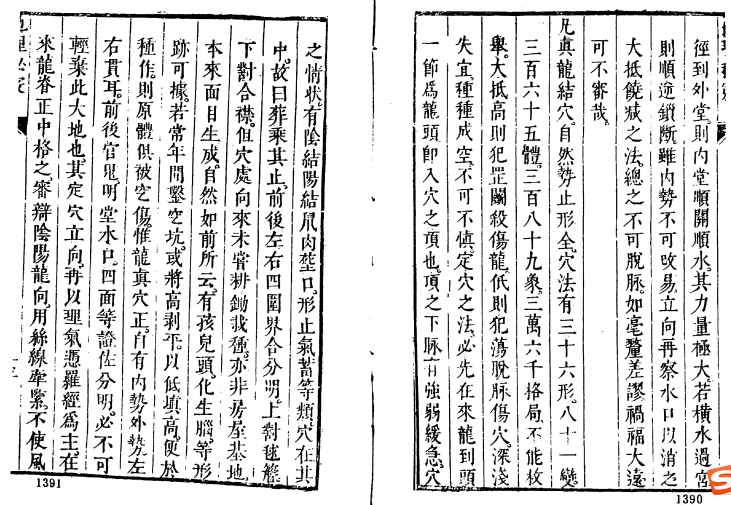 徑到外堂則內堂順開順水其力量極大若橫水過宮
則順逆鎖斷雖內勢不可改易立向再察水口以消之
大抵饒減之法總之不可脫脉如毫釐差謬禍福大遠
可不審哉
凡眞龍結穴自然勢止形全穴法有三十六形八十一變
三百六十五體三百八十九象三萬六千格局不能枚
舉大抵高則犯罡鬭殺傷龍低則犯蕩脫脉傷穴深淺
失宜種種成空不可不慎定穴之法必先在來龍到頭
一節爲龍頭卽入穴之頂也頂之下脉有強弱緩急穴
1390
之情狀有陰結陽結爪肉堃口形止氣蓄等類穴在其
中故曰葬乘其止前後左右四圍界合分明上對毬簷
下對合襟但穴處向來未甞耕鋤栽種亦非房屋基地
本來面目生成自然如前所云有孩兒頭化生腦等形
跡可據若常年間鑿空坑或將高剥平以低填高便於
種作則原體俱被空傷惟龍眞穴正自有內勢外勢左
右貫耳前後官鬼明堂水口四面等證佐分明必不可
輕棄此大地也其定穴立向再以理氣憑羅經爲主在
來龍脊正中格之審辯陰陽龍向用絲線牽緊不使風
1391